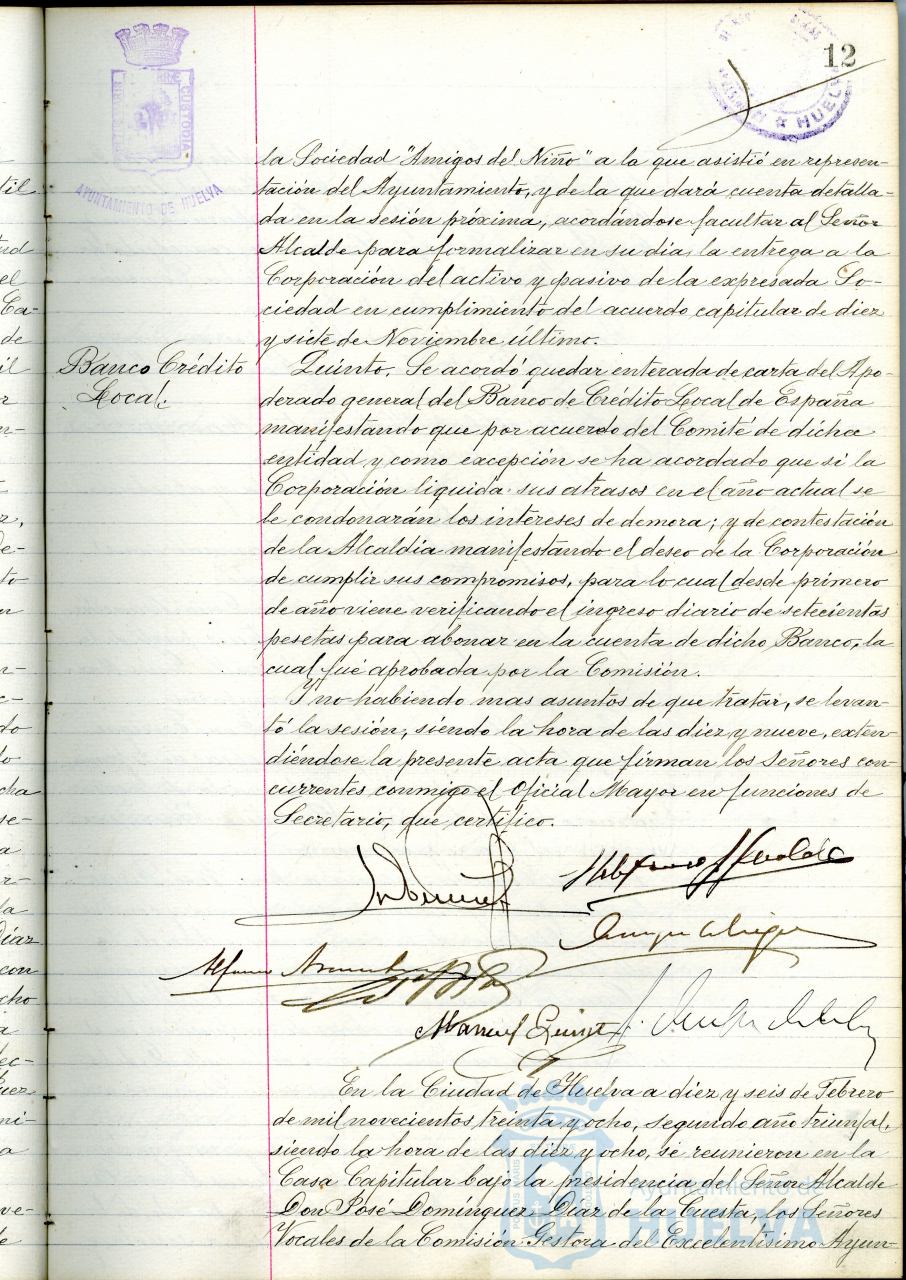 12
AYUNTAMIENTO DE HUELVA
HUELVA
la Sociedad "Amigos del Niño" a la que asistió en represen-
tación del Ayuntamiento, y de la que dará cuenta detalla-
da en la sesión próxima, acordándose facultar al Señor
Alcalde para formalizar en su dia, la entrega a la
Corporación del activo y pasivo de la expresada So-
ciedad en cumplimiento del acuerdo capitular de diez
y siete de Noviembre último.
Banco Crédito
Local.
Quinto. Se acordó quedar enterada de carta del Apo-
derado general del Banco de Crédito Local de España
manifestando que por acuerdo del Comité de dicha
entidad y como excepción se ha acordado que si la
Corporación liquida sus atrasos en el año actual se
le condonarán los intereses de demora; y de contestación
de la Alcaldía manifestando el deseo de la Corporación
de cumplir sus compromisos, para lo cual desde primero
de año viene verificando el ingreso diario de setecientas
pesetas para abonar en la cuenta de dicho Banco, la
cual fué aprobada por la Comisión.
Y no habiendo mas asuntos de que tratar, se levan-
tó la sesión, siendo la hora de las diez y nueve, exten-
diéndose la presente acta que firman los Señores con-
currentes conmigo el Oficial Mayor en funciones de
Secretario, que certifico.
Manuel
En la Ciudad de Huelva a diez y seis de Febrero
de mil novecientos treinta y ocho, segundo año triunfal,
siendo la hora de las diez y ocho, se reunieron en la
Casa Capitular bajo la presidencia del Señor Alcalde
Don José Domínguez Díaz de la Cuesta, los Señores
Vocales de la Comisión Gestora del Excelentísimo Ayun-
Ayuntamiento de
HUELVA